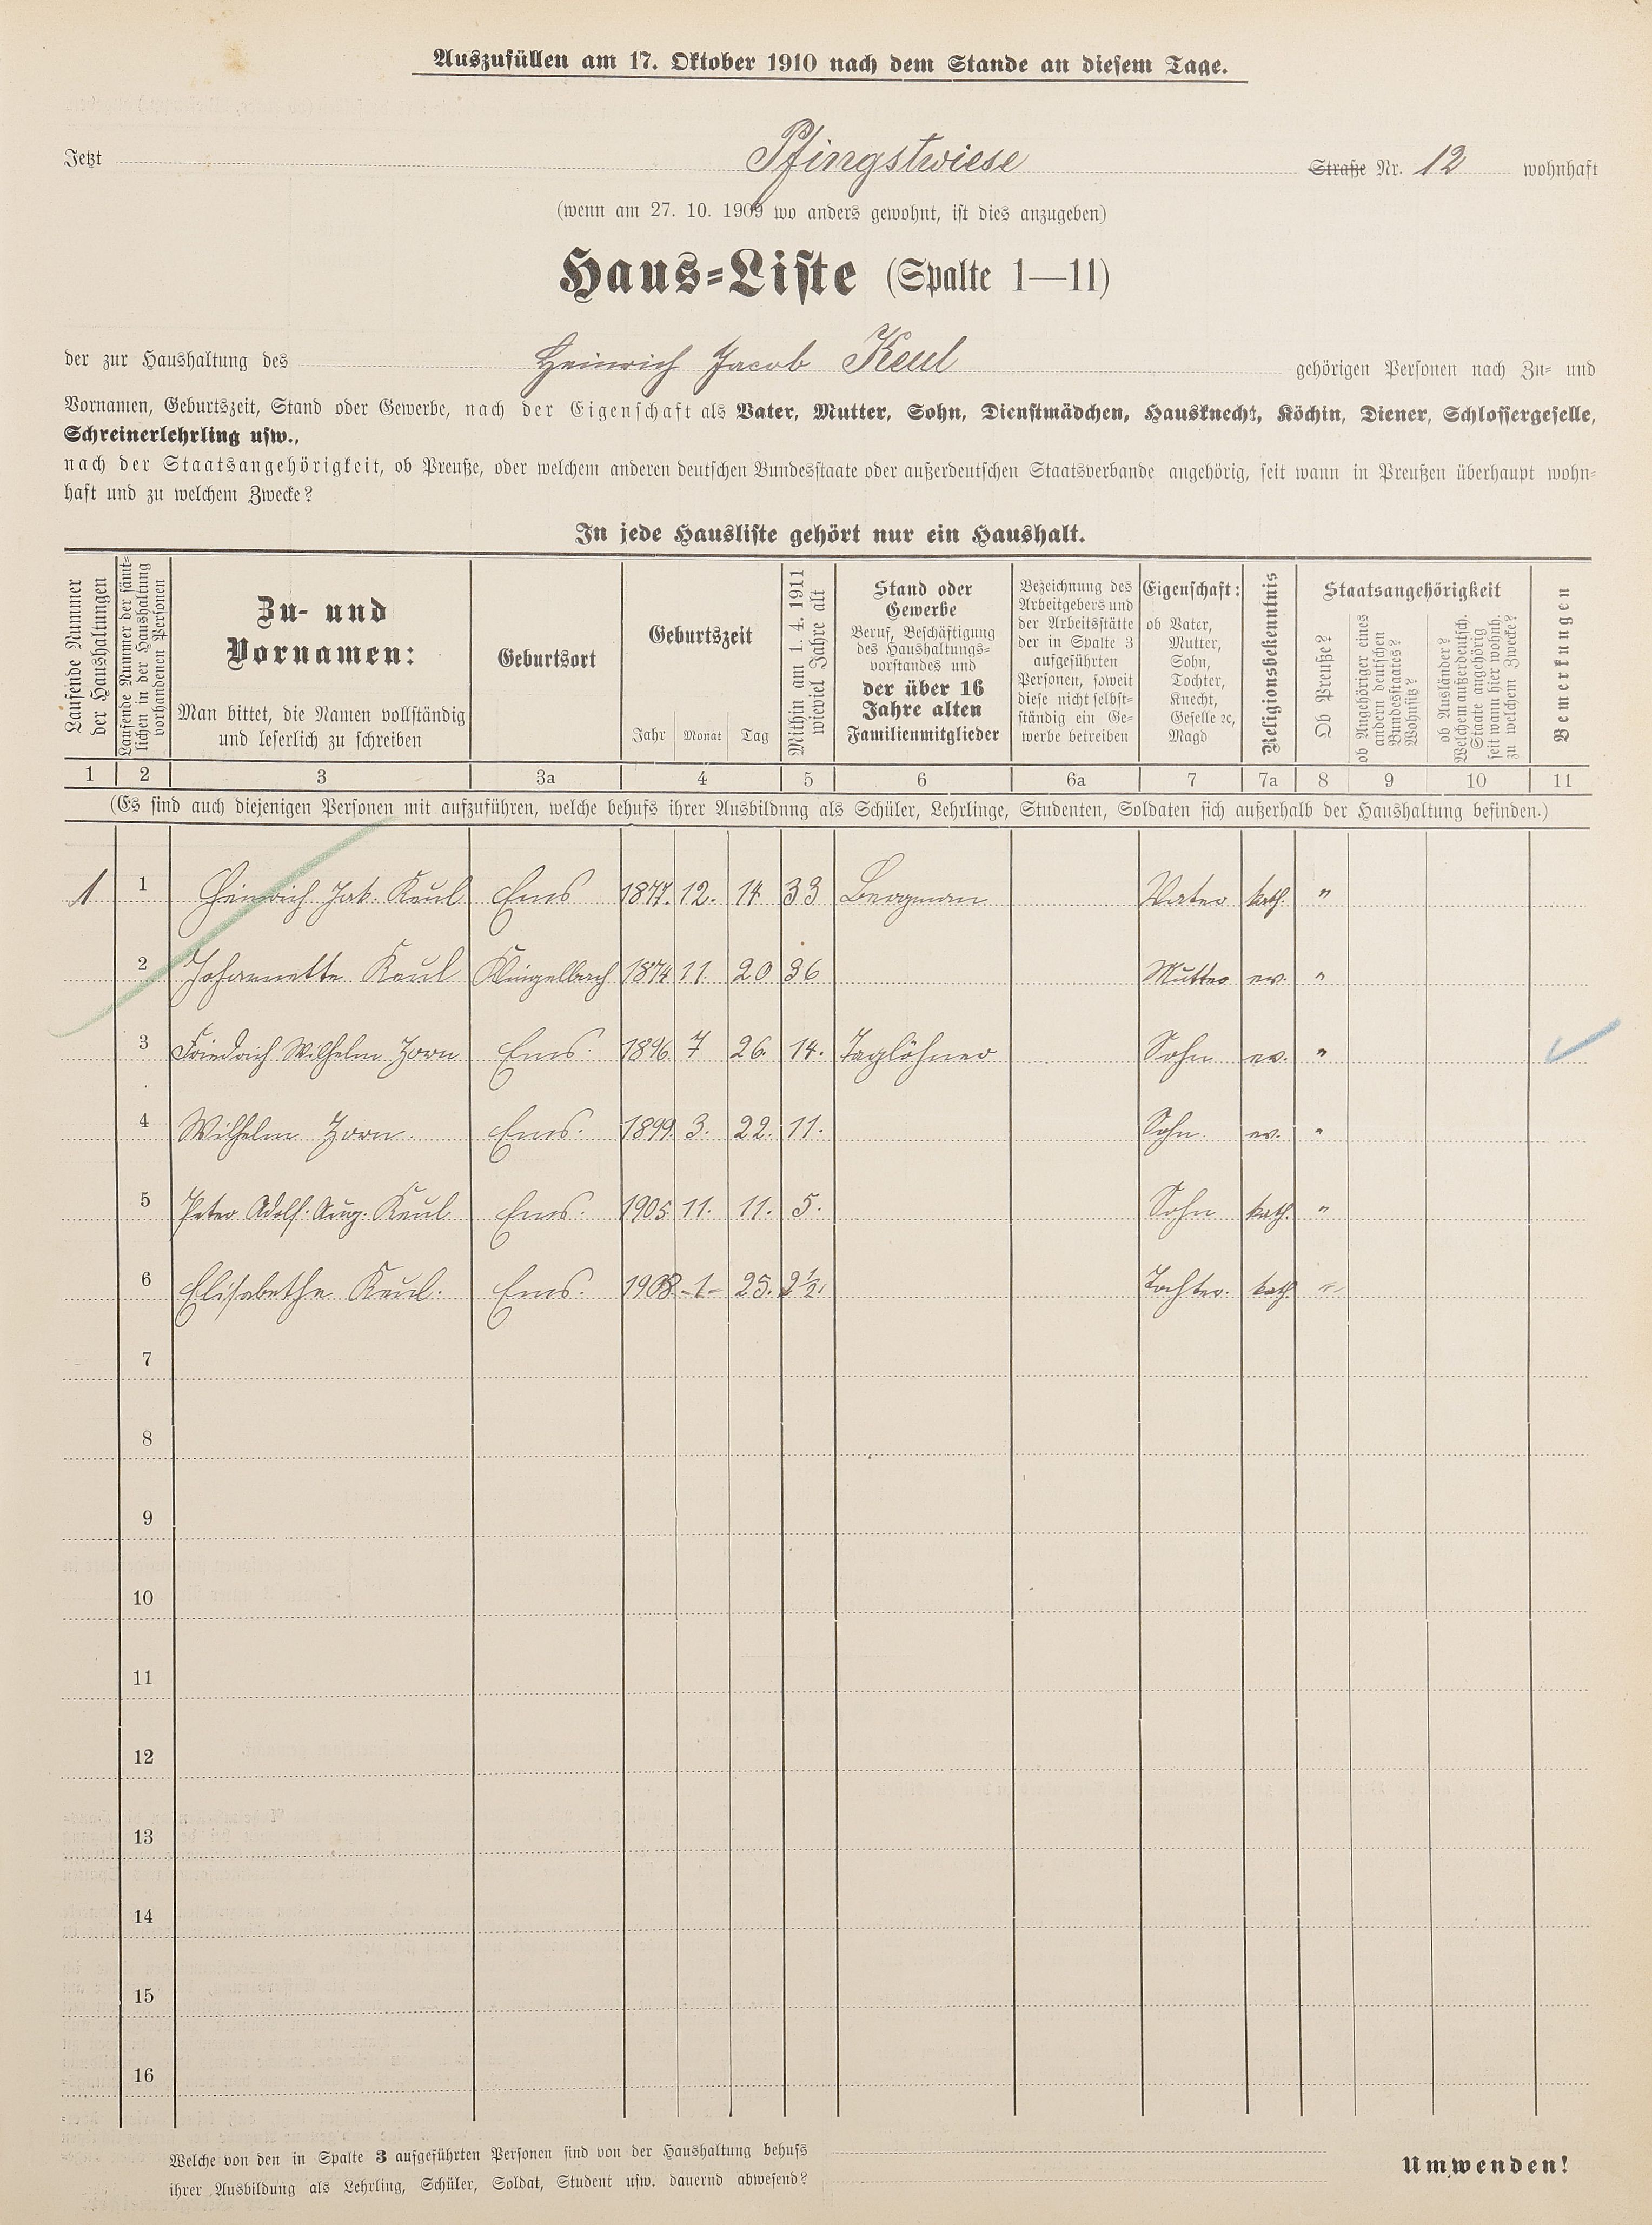 Auszufüllen am 17. Oktober 1910 nach dem Stande an diesem Tage.
Jetzt Pfingstwiese Straße Nr. 12 wohnhaft
(wenn am 27. 10. 1909 wo anders gewohnt, ist dies anzugeben)
Haus-Liste (Spalte 1—11)
der zur Haushaltung des Heinrich Jacob Keul gehörigen Personen nach Zu- und
Vornamen, Geburtszeit, Stand oder Gewerbe, nach der Eigenschaft als Vater, Mutter, Sohn, Dienstmädchen, Hausknecht, Köchin, Diener, Schlossergeselle,
Schreinerlehrling usw.,
nach der Staatsangehörigkeit, ob Preuße, oder welchem anderen deutschen Bundesstaate oder außerdeutschen Staatsverbande angehörig, seit wann in Preußen überhaupt wohn-
haft und zu welchem Zwecke?
In jede Hausliste gehört nur ein Haushalt.
Laufende Nummer
der Haushaltungen
Laufende Nummer der sämt-
lichen in der Haushaltung
vorhandenen Personen
Zu- und
Vornamen:
Man bittet, die Namen vollständig
und leserlich zu schreiben
Geburtsort
Geburtszeit
Jahr Monat Tag
Mithin am 1. 4. 1911
wieviel Jahre alt
Stand oder
Gewerbe
Beruf, Beschäftigung
des Haushaltungs-
vorstandes und
der über 16
Jahre alten
Familienmitglieder
Bezeichnung des
Arbeitgebers und
der Arbeitsstätte
der in Spalte 3
aufgeführten
Personen, soweit
diese nicht selbst-
ständig ein Ge-
werbe betreiben
Eigenschaft:
ob Vater,
Mutter,
Sohn,
Tochter,
Knecht,
Geselle ꝛc,
Magd
Religionsbekenntnis
Staatsangehörigkeit
Ob Preuße?
ob Angehöriger eines
andern deutschen
Bundesstaates?
Wohnsitz?
ob Ausländer?
Welchem außerdeutsch.
Staate angehörig
seit wann hier wohnh.
zu welchem Zwecke?
Bemerkungen
1 2 3 3a 4 5 6 6a 7 7a 8 9 10 11
(Es sind auch diejenigen Personen mit aufzuführen, welche behufs ihrer Ausbildung als Schüler, Lehrlinge, Studenten, Soldaten sich außerhalb der Haushaltung befinden.)
1 1 Heinrich Jak. Keul Ems 1877. 12. 14 33 Bergman Vater kath. "
2 Johannette Keul Klingelbach 1874 11. 20 36 Mutter ev. "
3 Friedrich Wilhelm Zorn Ems. 1896 7 26. 14. Taglöhner Sohn ev. "
4 Wilhelm Zorn. Ems. 1899. 3. 22. 11. Sohn. ev. "
5 Peter Adolf. Aug. Keul Ems. 1905 11. 11. 5. Sohn kath. "
6 Elisabethe Keul. Ems. 1908 -1- 25. 2½. Tochter. kath. "
7
8
9
10
11
12
13
14
15
16
Welche von den in Spalte 3 aufgeführten Personen sind von der Haushaltung behufs
ihrer Ausbildung als Lehrling, Schüler, Soldat, Student usw. dauernd abwesend?
Umwenden!